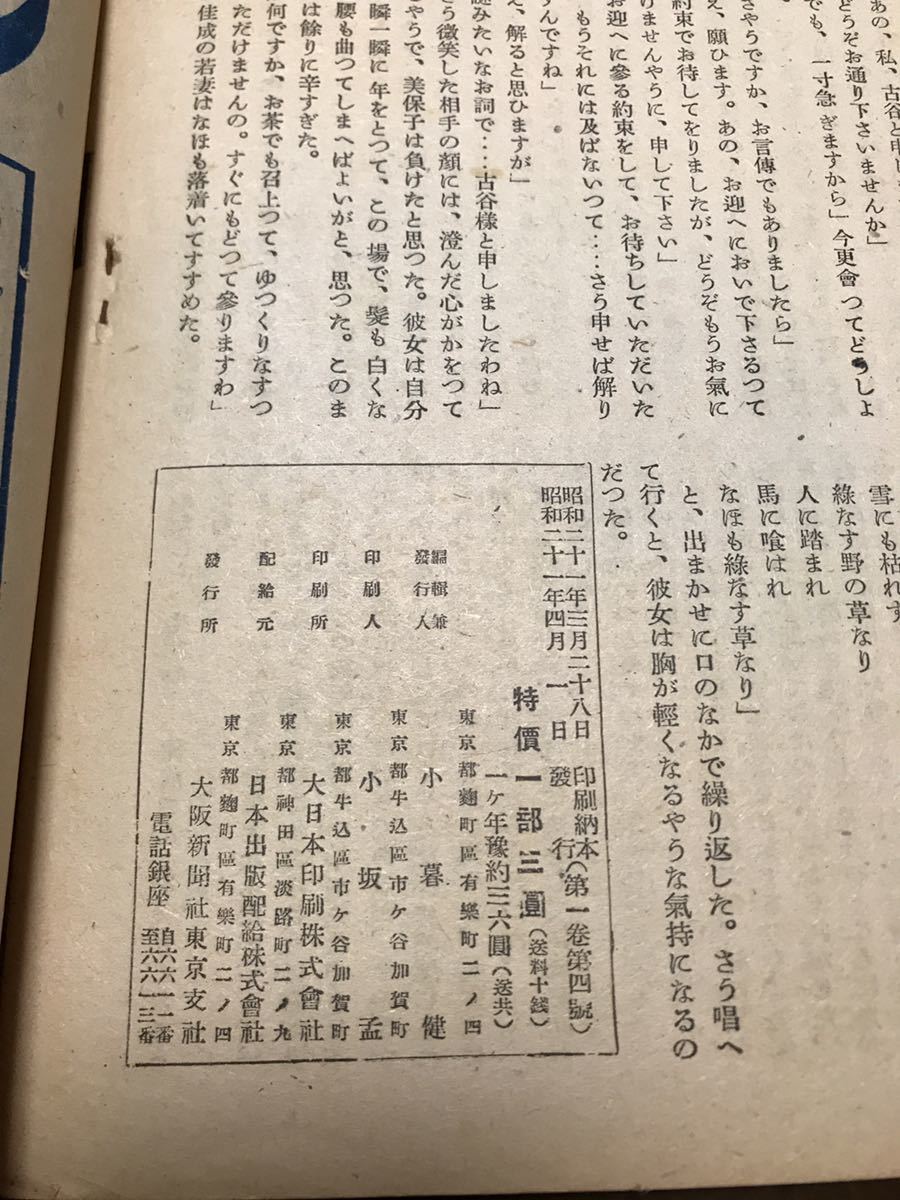 あの、私、古谷と申しま
どうぞお通り下さいませんか」
でも、一寸急ぎますから」今更會つてどうしよ
さやうですか、お言傳でもありましたら」
え、願ひます。あの、お迎へにおいで下さるつて
約束でお待してをりましたが、どうぞもうお氣に
けませんやうに、申して下さい」
お迎へに參る約束をして、お待ちしていただいた
もうそれには及ばないつて‥‥さう申せば解り
んですね」
え、解ると思ひますが」
謎みたいなお詞で‥‥古谷樣と申しましたわね」
う微笑した相手の顔には、澄んだ心がかをつて
やうで、美保子は負けたと思つた。彼女は自分
瞬一瞬に年をとつて、この場で、髪も白くな
腰も曲つてしまへばよいがと、思つた。このま
は餘りに辛すぎた。
何ですか、お茶でも召上つて、ゆつくりなすつ
ただけませんの。すぐにもどつて參りますわ」
佳成の若妻はなほも落着いてすすめた。
雪にも枯れず
綠なす野の草なり
人に踏まれ
馬に喰はれ
なほも綠なす草なり」
と、出まかせに口のなかで繰り返した。さう唱へ
て行くと、彼女は胸が輕くなるやうな氣持になるの
だつた。
昭和二十一年三月二十八日 印刷納本(第一卷第四號)
昭和二十一年四月一日 發行
特價一部三圓(送料十錢)
一ケ年豫約三六圓(送共)
東京都麴町區有樂町二ノ四
編輯兼發行人 小暮健
東京都牛込區市ケ谷加賀町
印刷人 小坂孟
東京都牛込區市ケ谷加賀町
印刷所 大日本印刷株式會社
東京都神田區淡路町二ノ九
配給元 日本出版配給株式會社
東京都麴町區有樂町二ノ四
發行所 大阪新聞社東京支社
電話銀座 自六六一一番至六六一三番